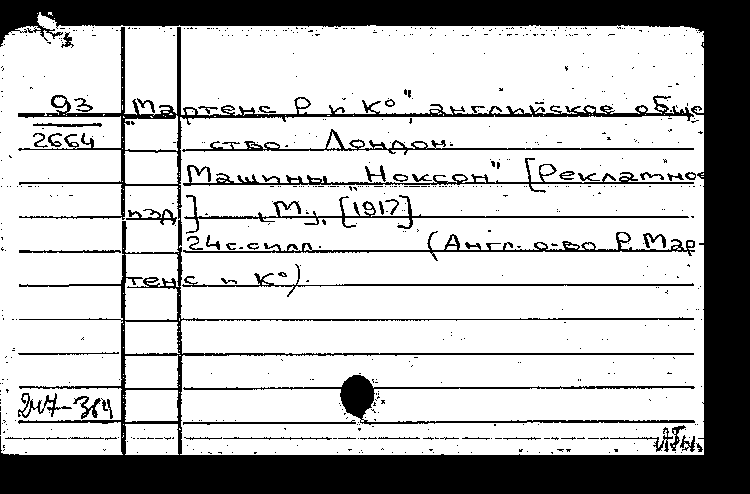 93 "Мартенс, Р. и К°", английское обще
2664 ство. Лондон.
Машины "Ноксон" [Рекламное
изд]. , М., [1917].
24с.силл. (Англ. о-во Р. Мар-
тенс и К°).
247-364